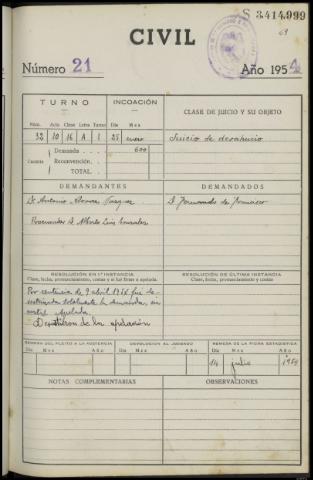 S 3.414.999
69
CIVIL
Número 21
Año 1954
TURNO
INCOACIÓN
CLASE DE JUICIO Y SU OBJETO
Núm. Año Clase Letra Turno Día Mes
32 10 16 A 1 25 enero
Juicio de desahucio
Cuantía
Demanda . . . 600
Reconvención. . . .
TOTAL. . .
DEMANDANTES
DEMANDADOS
D. Antonio Vazquez
Procurador D. Alberto Luis
D. Fernando de
RESOLUCIÓN EN 1ª INSTANCIA
Clase, fecha, pronunciamiento, costas y si fué firme o apelada.
RESOLUCIÓN DE ÚLTIMA INSTANCIA
Clase, fecha, pronunciamiento y costas
Por sentencia de 9 abril 1954 fué de-
sestimada totalmente la demanda, sin
costas. Apelada.
Desistieron de la apelación
REMESA DEL PLEITO A LA AUDIENCIA
DEVOLUCIÓN AL JUZGADO
REMESA DE LA FICHA ESTADÍSTICA
Día Mes Año
Día Mes Año
Día Mes Año
14 julio 1954
NOTAS COMPLEMENTARIAS
OBSERVACIONES